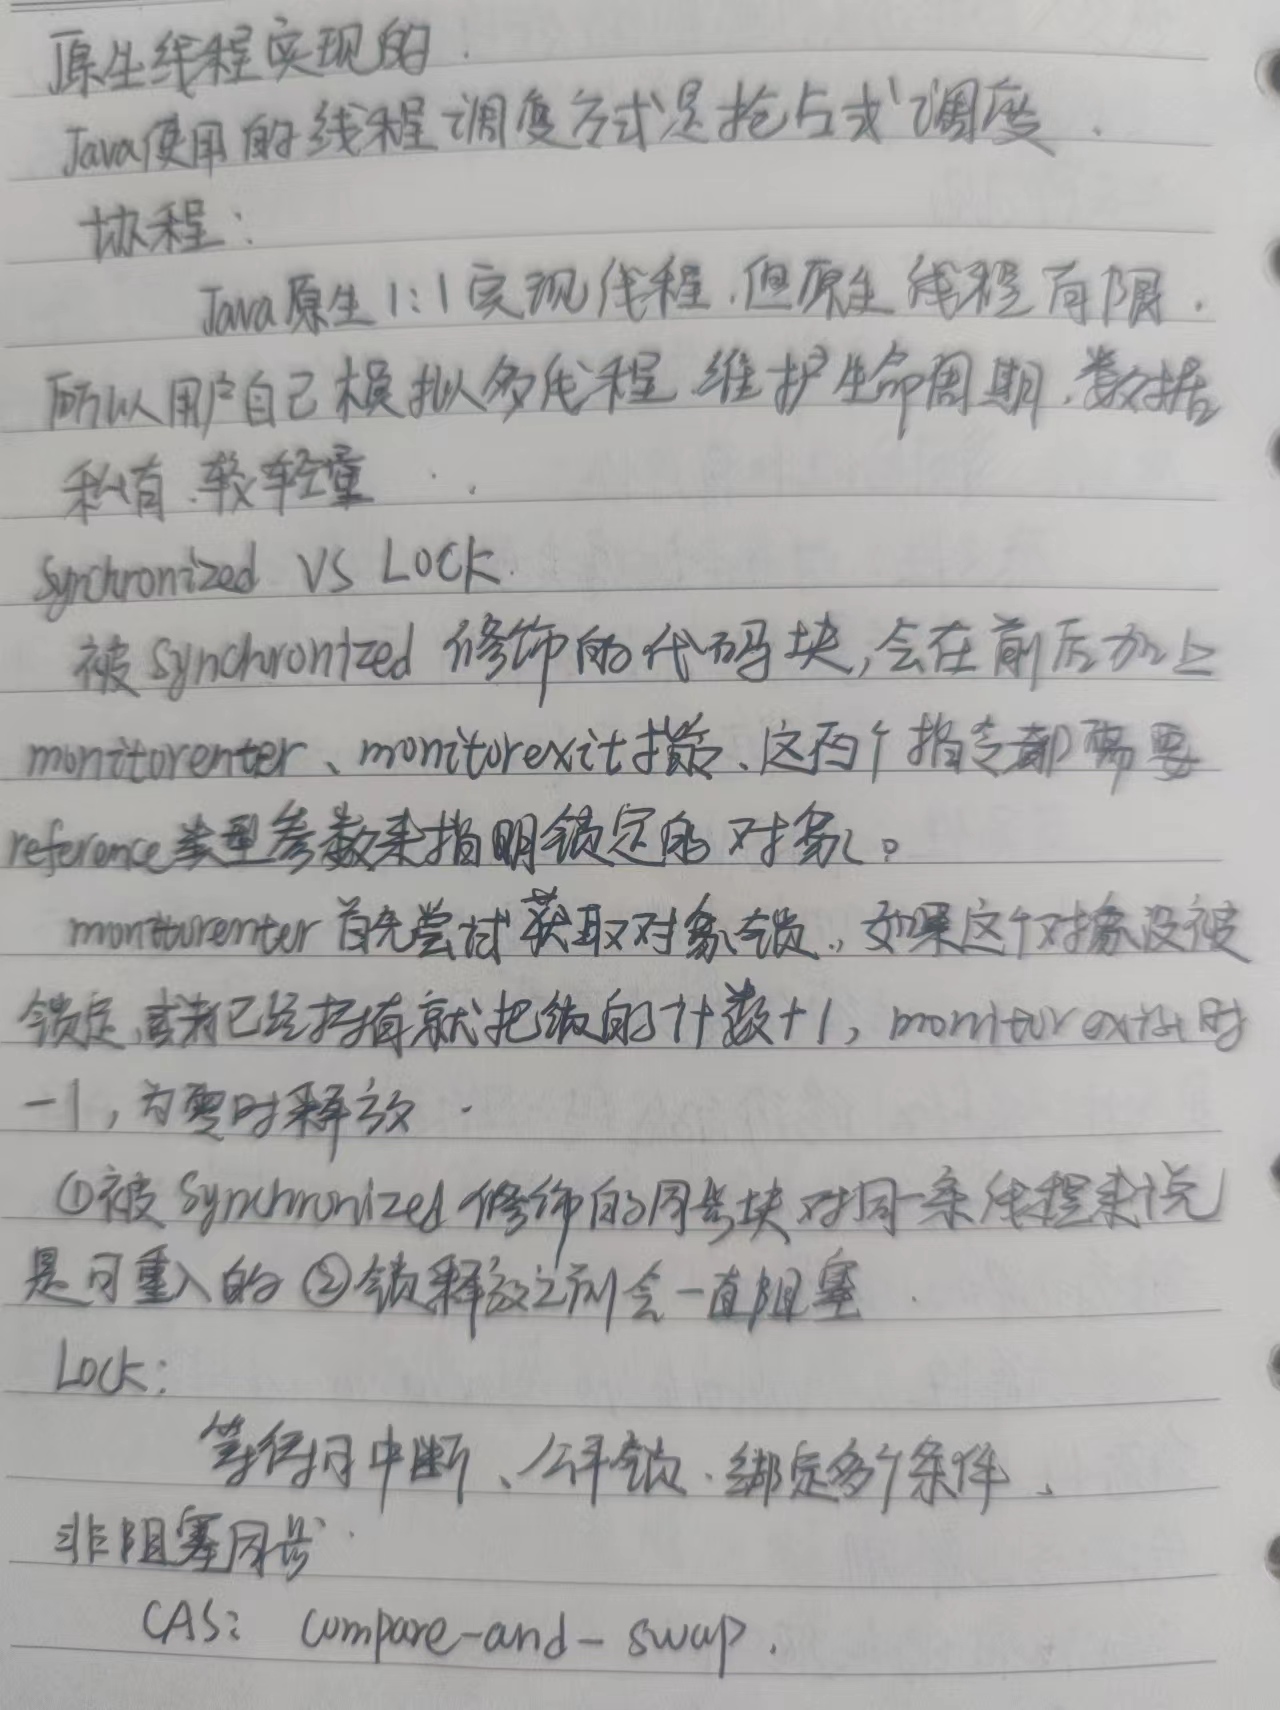 原生线程实现的.
Java使用的线程调度方式是抢占式调度.
协程:
Java原生1:1实现线程.但原生线程有限.
所以用户自己模拟多线程.维护生命周期.数据
私有.较轻量.
Synchronized VS Lock.
被Synchronized修饰的代码块,会在前后加上
monitorenter、monitorexit指令、这两个指令都需要
reference类型参数来指明锁定的对象。
monitorenter首先尝试获取对象锁.,如果这个对象没被
锁定,或者已经持有就把锁的计数+1, monitorexit时
-1,为零时释放.
①被Synchronized修饰的同步块对同一条线程来说
是可重入的②锁释放之前会一直阻塞.
Lock:
等待可中断、公平锁.绑定多个条件、
非阻塞同步.
CAS: compare-and-swap.